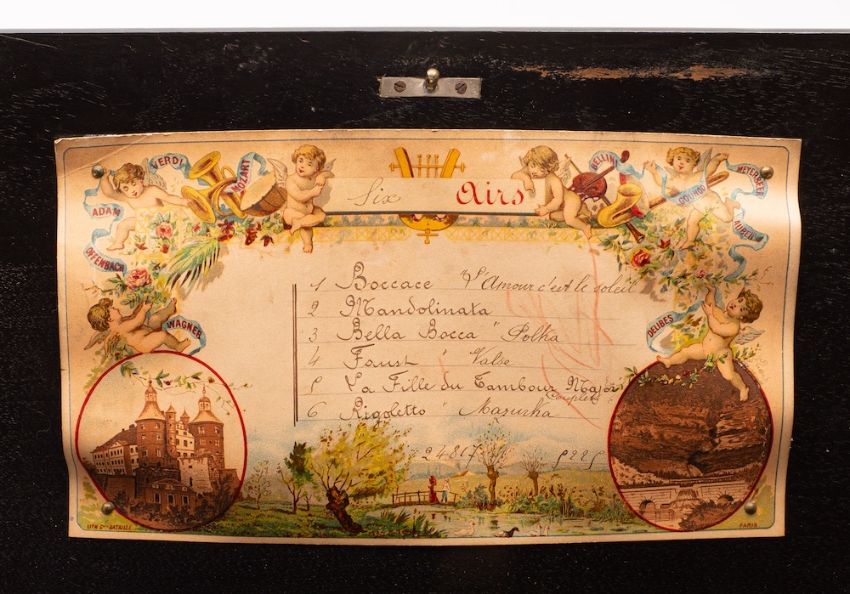 VERDI
ADAM
OFFENBACH
WAGNER
MOZART
Six Airs
BELLINI
GOUNOD
MEYERBEER
AUBER
DELIBES
1 Boccace "L'Amour c'est le soleil
2 Mandolinata
3 Bella Bocca " Polka
4 Faust " Valse
5 La Fille du Tambour Major
Couplets
6 Rigoletto " Mazurka
5225
PARIS